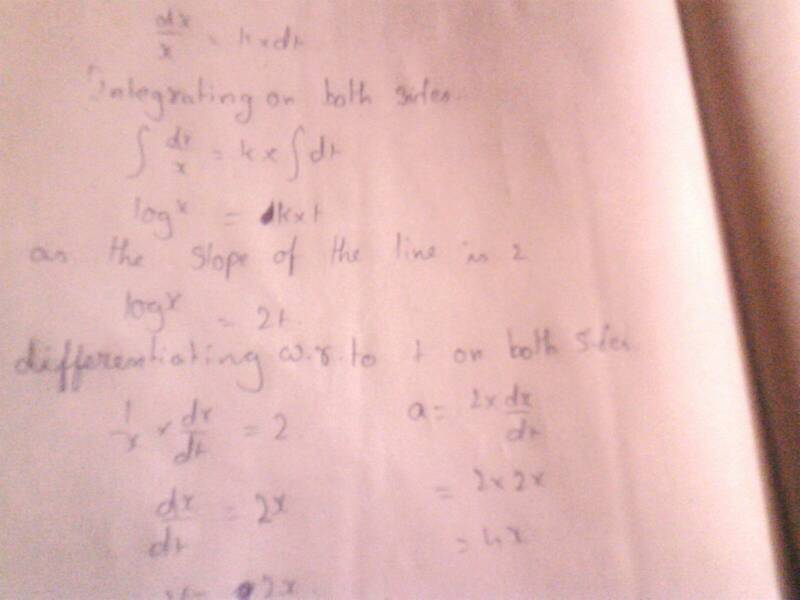 dx/x = k×dt
Integrating on both sides.
∫ dx/x = k × ∫ dt
log x = k×t
as the slope of the line is 2
log x = 2t
differentiating w.r.to t on both sides
1/x × dx/dt = 2
dx/dt = 2x
v= 2x
a = 2×dx/dt
= 2×2x
= 4x